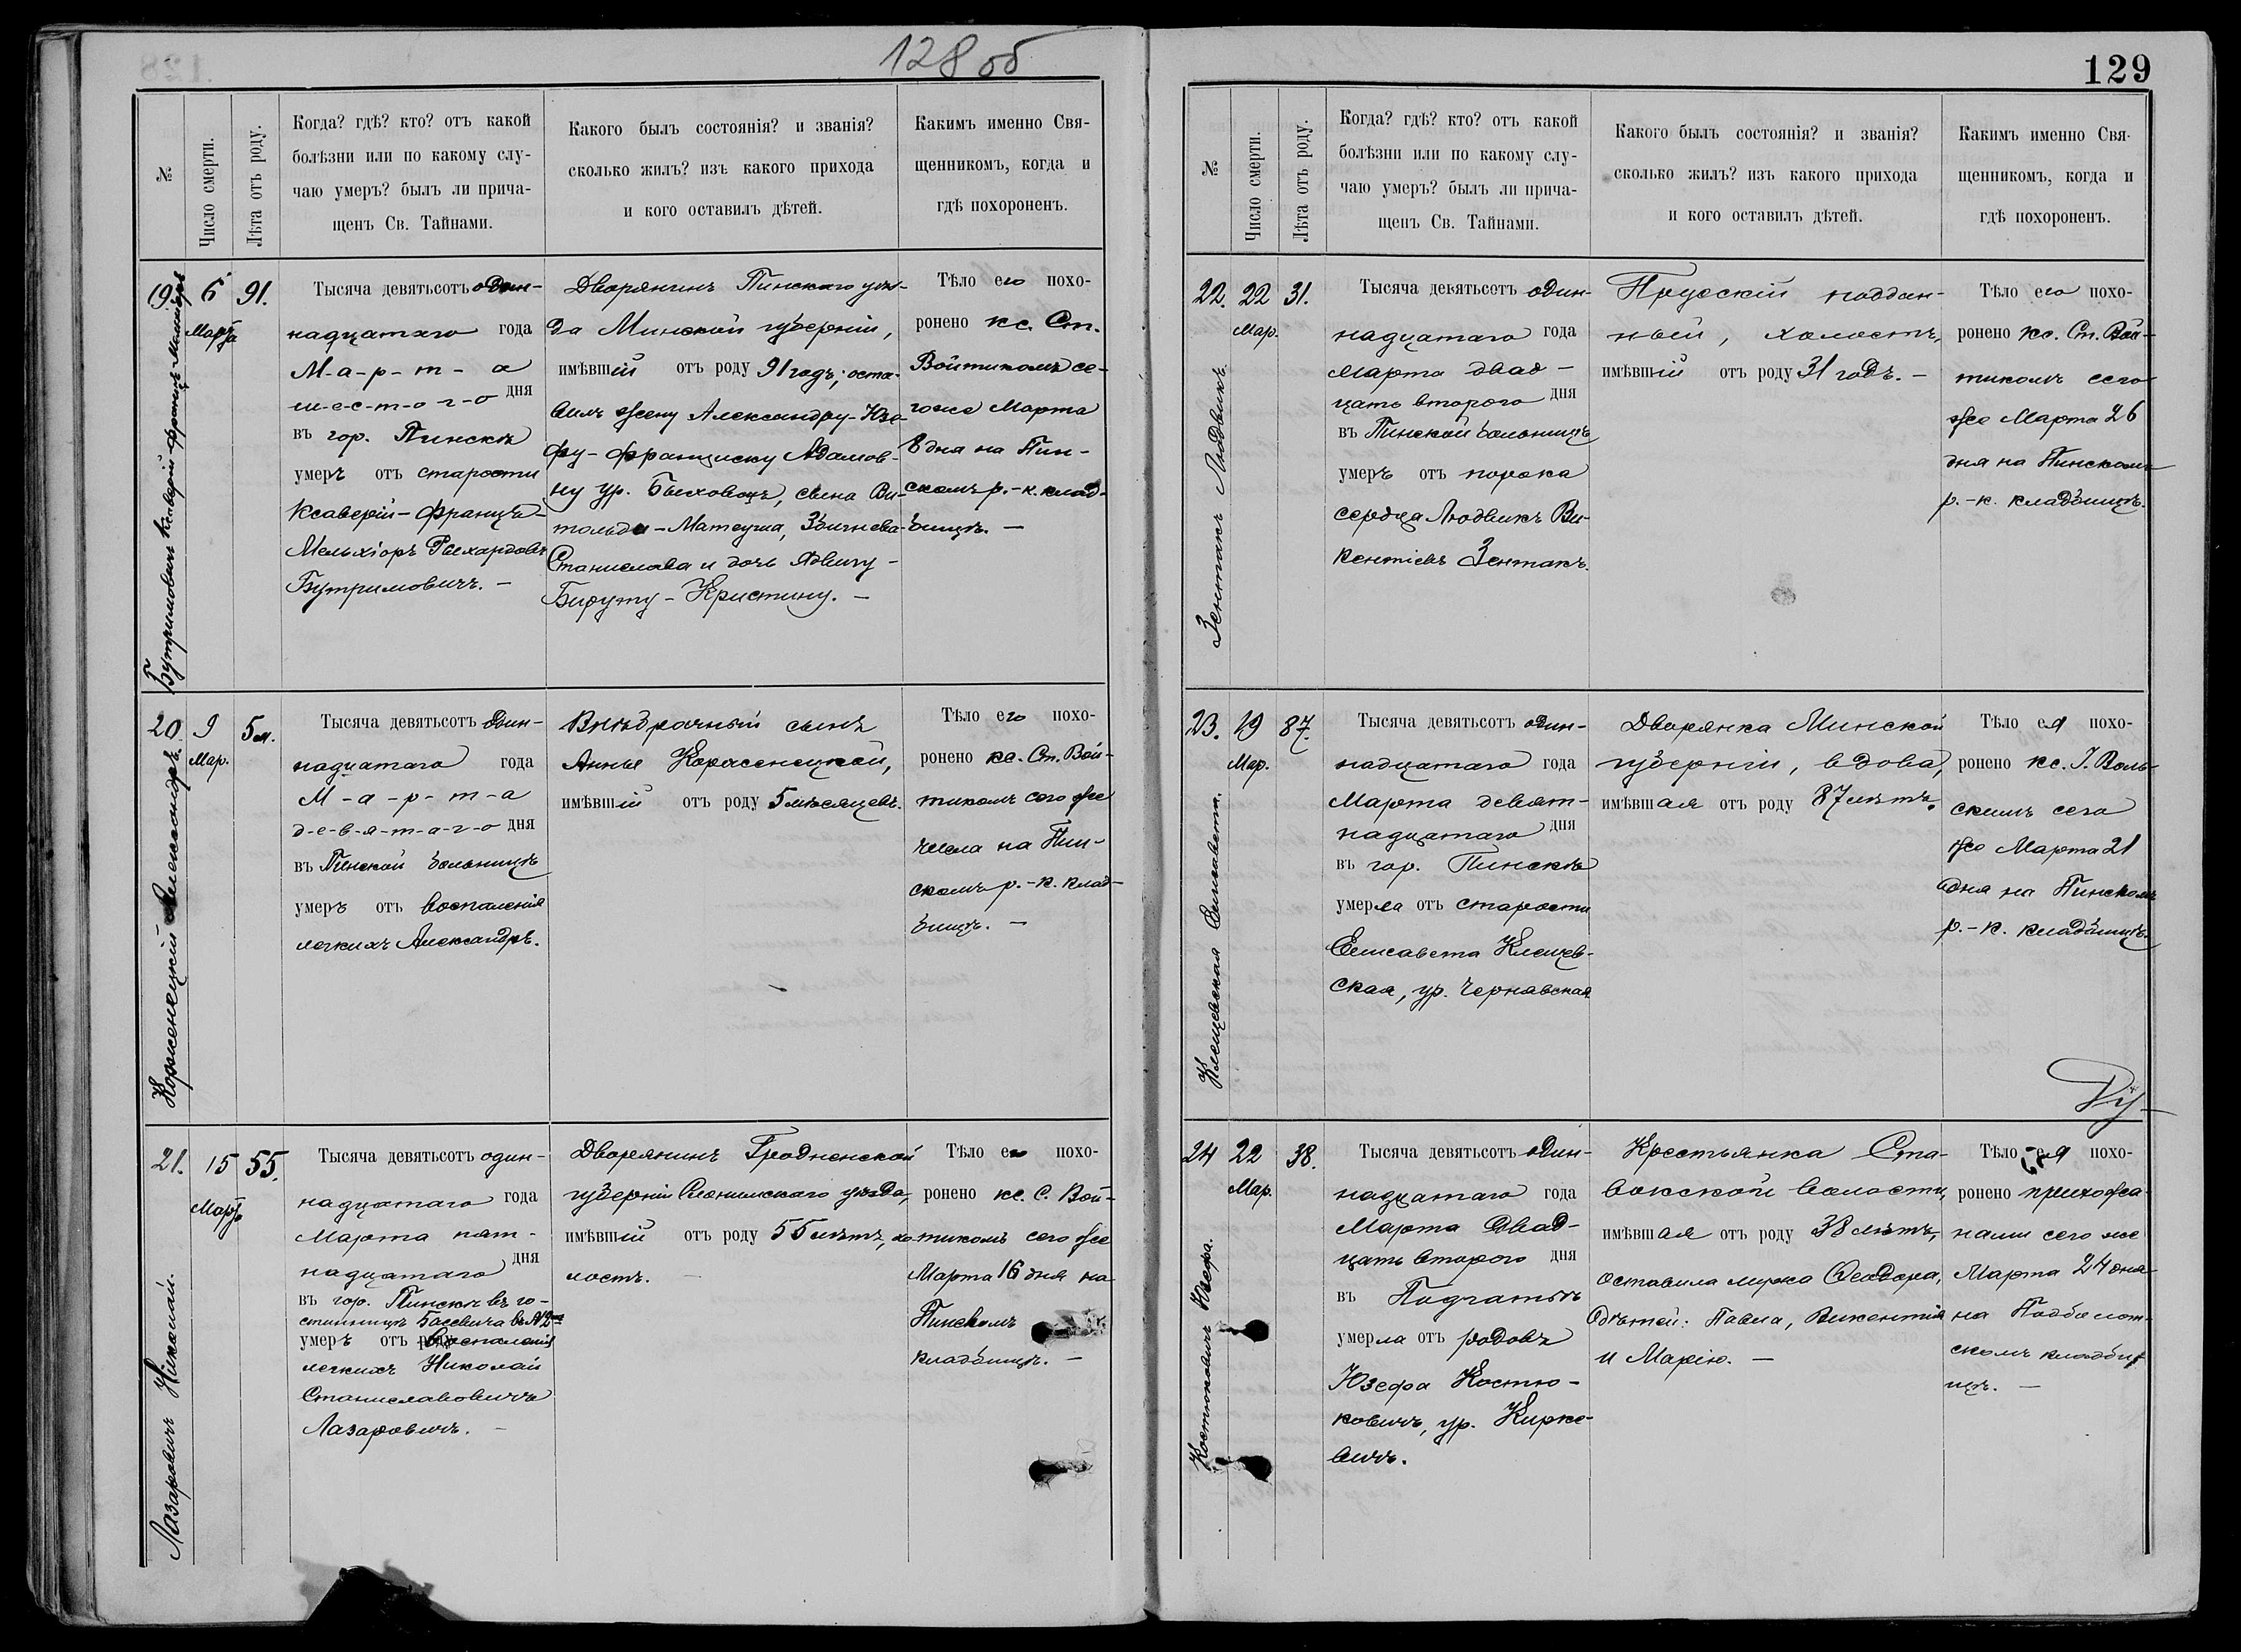 128 об
№
Число смерти.
Лѣта отъ роду.
Когда? гдѣ? кто? отъ какой
болѣзни или по какому слу-
чаю умеръ? былъ ли прича-
щенъ Св. Тайнами.
Какого былъ состоянія? и званія?
сколько жилъ? изъ какого прихода
и кого оставилъ дѣтей.
Какимъ именно Свя-
щенникомъ, когда и
гдѣ похороненъ.
19.
6
Марта
91.
Бутримовичъ Ксаверій-Францъ-Мельхіоръ
Тысяча девятьсотъ один-
надцатаго года
М-а-р-т-а
ш-е-с-т-о-г-о дня
въ гор. Пинскѣ
умеръ отъ старости
Ксаверій-Францъ-
Мельхіоръ Рыхардовъ
Бутримовичъ. -
Дворянинъ Пинскаго уѣз-
да Минской губерніи,
имѣвшій отъ роду 91 годъ; оста-
вилъ жену Александру-Юзе-
фу-Франциску Адамов-
ну ур. Быховецъ, сына Ви-
тольда-Матеуша, Збигнева-
Станислава и дочь Ядвигу-
Бируту-Кристину. -
Тѣло его похо-
ронено кс. Ст.
Войтикомъ се-
гоже Марта
8 дня на Пин-
скомъ р.-к. клад-
бищѣ. -
20.
9
Мар.
5 м.
Корженецкій Александръ.
Тысяча девятьсотъ один-
надцатаго года
М-а-р-т-а
д-е-в-я-т-а-г-о дня
въ Пинской больницѣ
умеръ отъ воспаленія
легкихъ Александръ.
Внѣбрачный сынъ
Анны Корженецкой,
имѣвшій отъ роду 5 мѣсяцевъ.
Тѣло его похо-
ронено кс. Ст. Вой-
тикомъ сего же
числа на Пин-
скомъ р.-к. клад-
бищѣ. -
21.
15
Марта
55.
Лазаровичъ Николай.
Тысяча девятьсотъ один-
надцатаго года
Марта пят-
надцатаго дня
въ гор. Пинскѣ въ го-
стинницѣ Басевича въ №2
умеръ отъ воспаленія
легкихъ Николай
Станиславовичъ
Лазаровичъ. -
Дворянинъ Гродненской
губерніи Слонимскаго уѣзда,
имѣвшій отъ роду 55 лѣтъ, хо-
лостъ. -
Тѣло его похо-
ронено кс. С. Вой-
тикомъ сего же
Марта 16 дня на
Пинскомъ
кладбищѣ. -
129
№
Число смерти.
Лѣта отъ роду.
Когда? гдѣ? кто? отъ какой
болѣзни или по какому слу-
чаю умеръ? былъ ли прича-
щенъ Св. Тайнами.
Какого былъ состоянія? и званія?
сколько жилъ? изъ какого прихода
и кого оставилъ дѣтей.
Какимъ именно Свя-
щенникомъ, когда и
гдѣ похороненъ.
22.
22
Мар.
31.
Зентакъ Людвикъ.
Тысяча девятьсотъ один-
надцатаго года
Марта двад-
цать второго дня
въ Пинской больницѣ
умеръ отъ порока
сердца Людвикъ Ви-
кентіевъ Зентакъ.
Прускій поддан-
ный, холостъ,
имѣвшій отъ роду 31 годъ. -
Тѣло его похо-
ронено кс. Ст. Вой-
тикомъ сего
же Марта 26
дня на Пинскомъ
р.-к. кладбищѣ.
23.
19
Мар.
87.
Клещевская Елисавета.
Тысяча девятьсотъ один-
надцатаго года
Марта девят-
надцатаго дня
въ гор. Пинскѣ
умерла отъ старости
Елисавета Клещев-
ская, ур. Чернявская
Дворянка Минской
губерніи, вдова,
имѣвшая отъ роду 87 лѣтъ.
Тѣло ея похо-
ронено кс. І. Воль-
скимъ сего
же Марта 21
дня на Пинскомъ
р.-к. кладбищѣ.
24
22
Мар.
38.
Костюковичъ Юзефа.
Тысяча девятьсотъ один-
надцатаго года
Марта двад-
цать второго дня
въ Подчатьѣ
умерла отъ родовъ
Юзефа Костю-
ковичъ, ур. Кирке-
вичъ.
Крестьянка Ста-
вокской волости,
имѣвшая отъ роду 38 лѣтъ,
оставила мужа Ѳеодора,
дѣтей: Павла, Викентія
и Марію. -
Тѣло ея похо-
ронено прихожа-
нами сего же
Марта 24 дня
на Подболот-
скомъ кладби-
щѣ. -